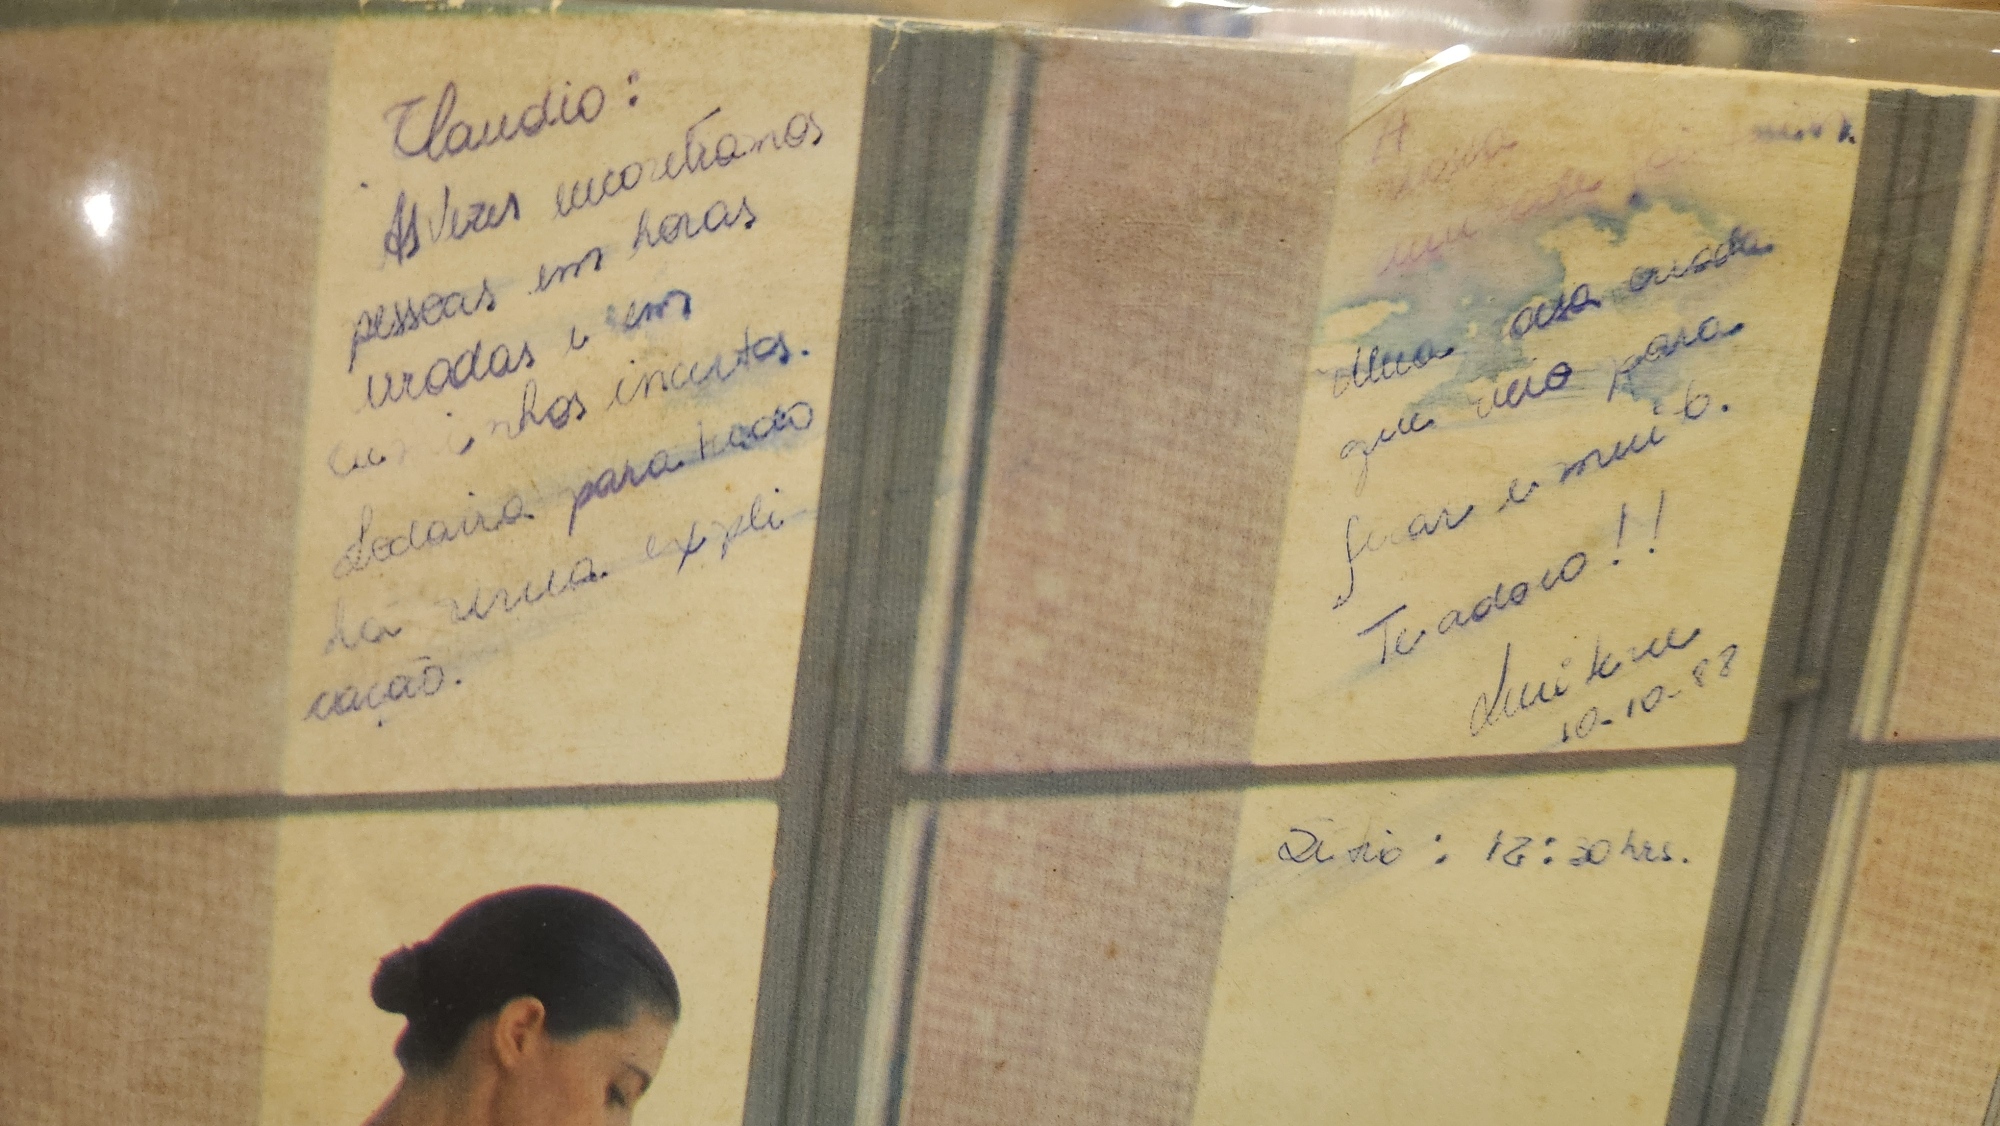 Claudio:
Às vezes encontramos
pessoas em horas
erradas e em
caminhos incertos.
Todavia para tudo
há uma expli-
cação.
A
nossa
amizade foi
uma coisa ousada
que veio para
ficar e muito.
Te adoro!!
10-10-88
:30 hrs.